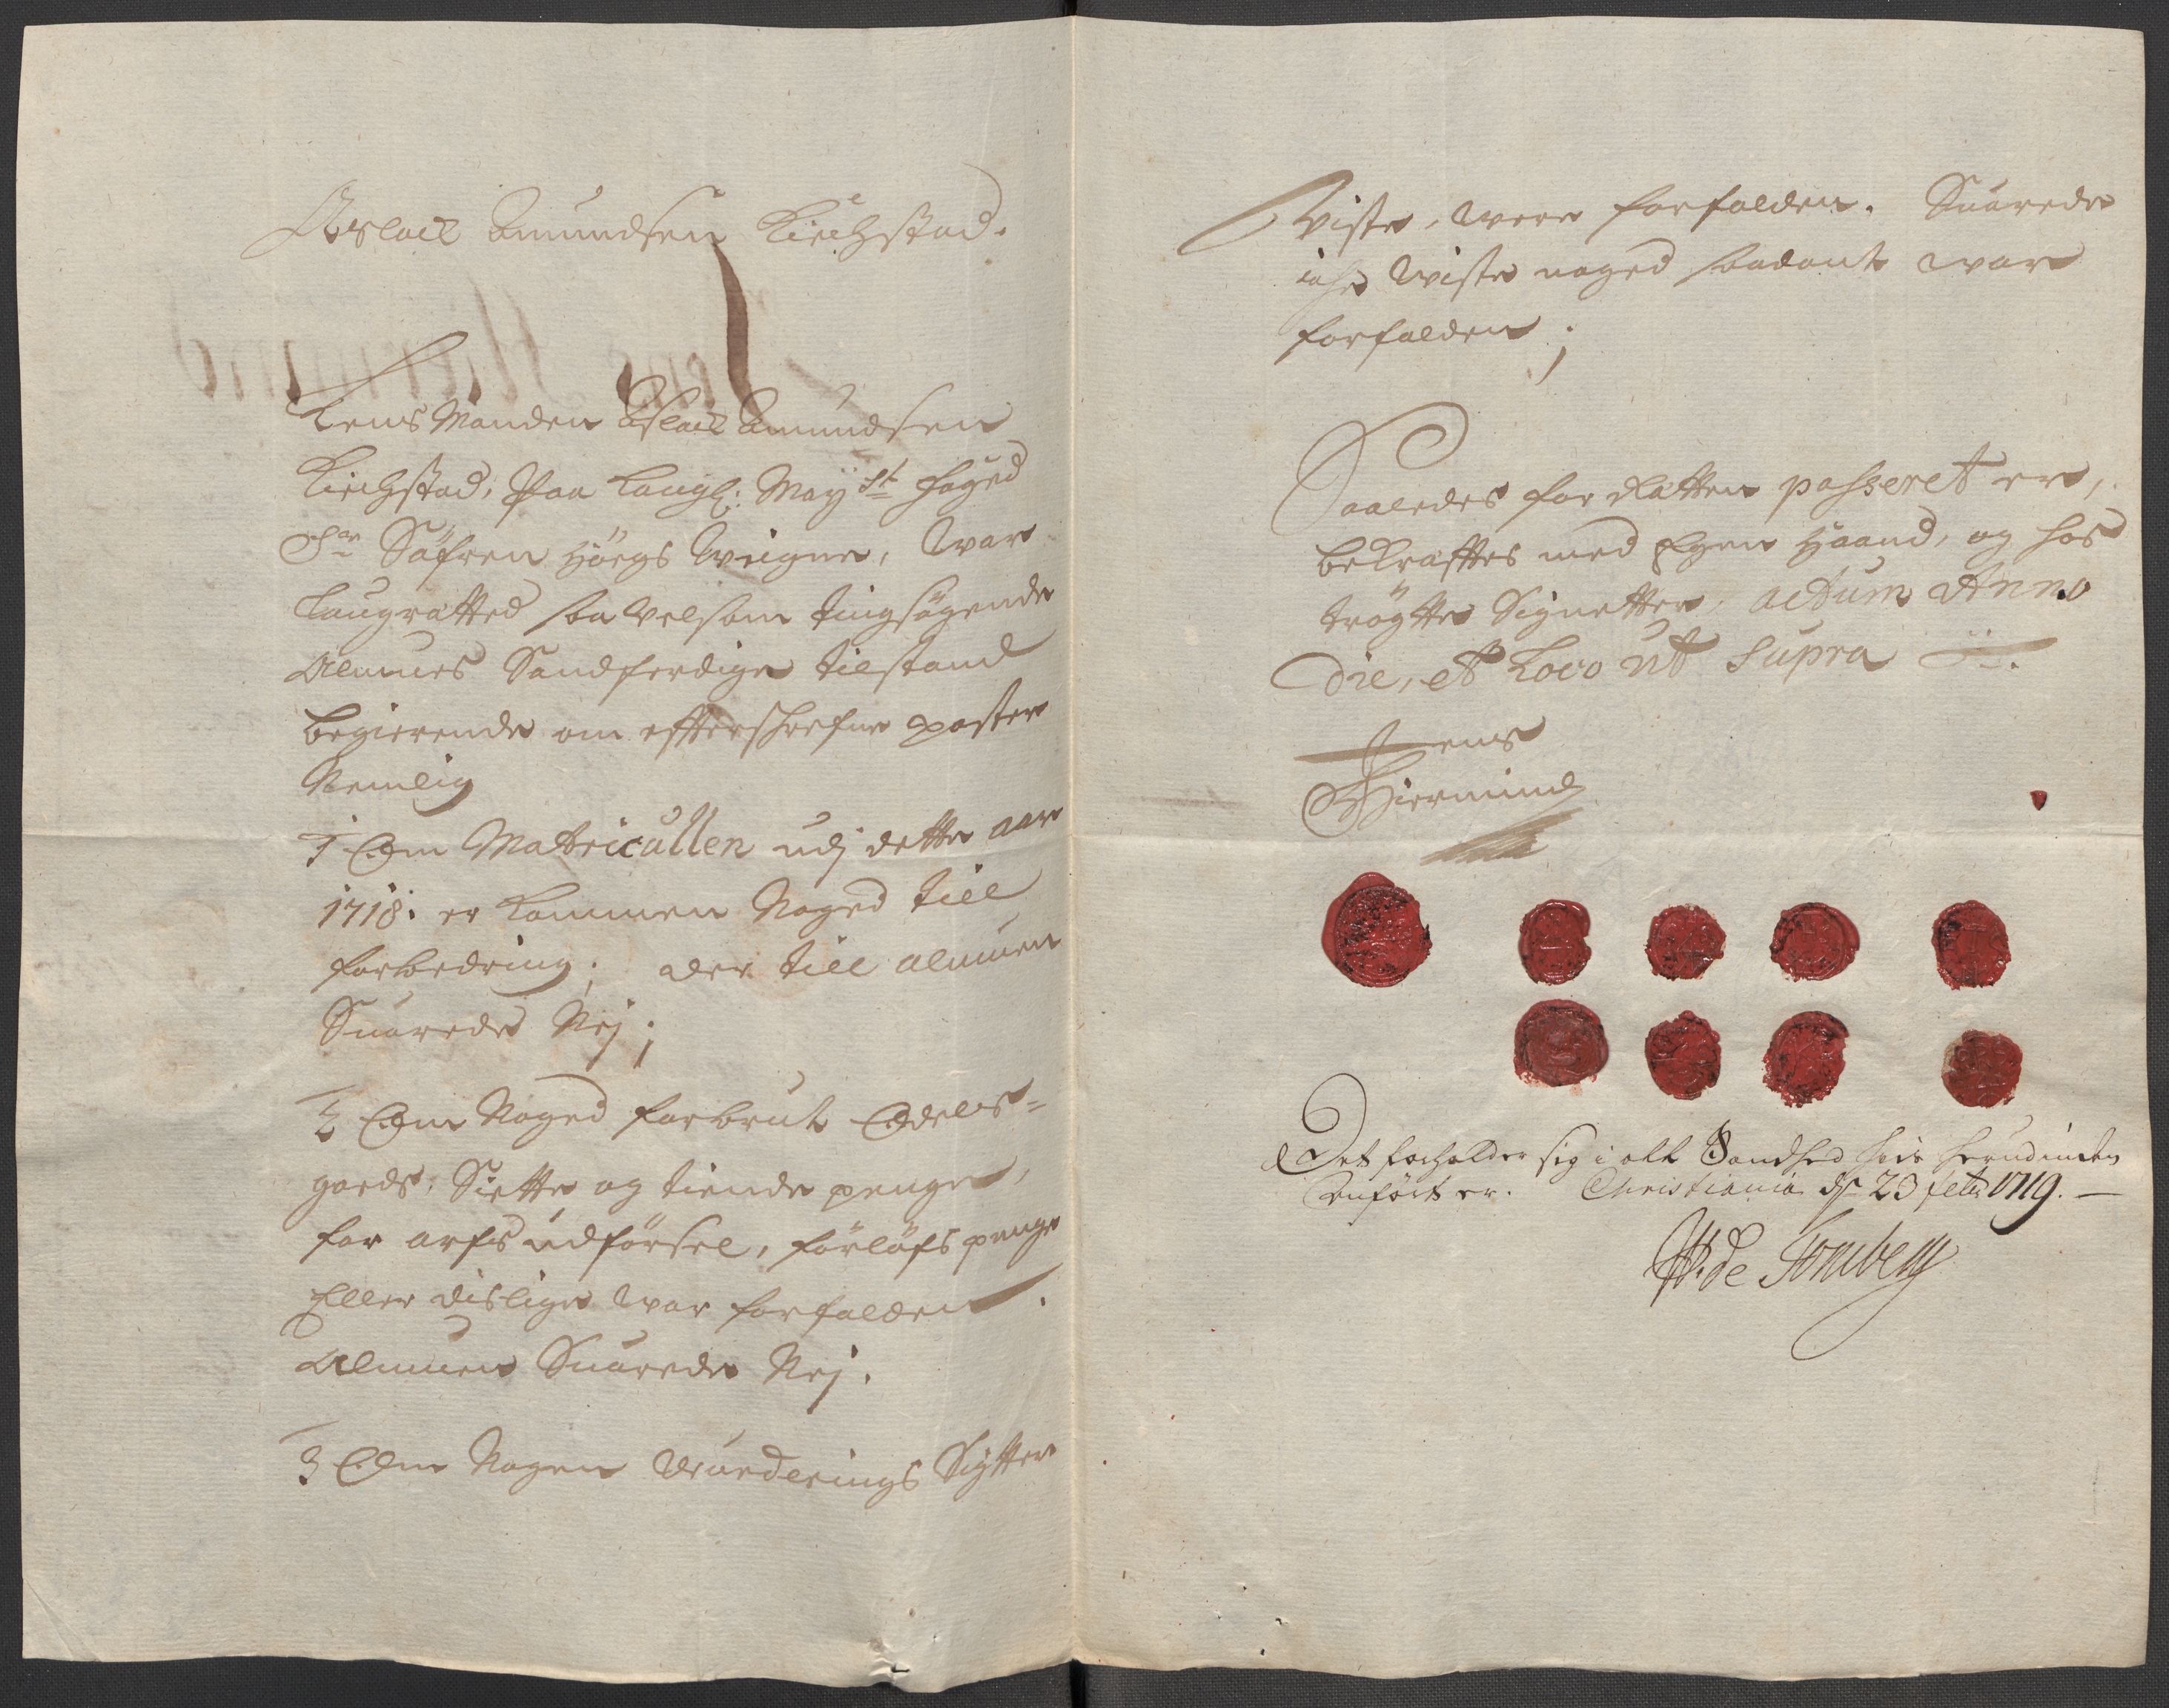 Aslack Amundsen Kirchstad.
Lens Manden Aslack Amundsen
Kirchstad, Paa Kongl: Mayst foged
Sr Söfren Höegs Weigne, War
Laugrætted saa velsom tingsögende
Almues Sandferdige tilstand
begierende om effterschrefne poster
Nemlig
1 Om Matricullen udj dette aar
1718. er kommen Noged till
forbedring; der till almuen
Suarede Nej;
2 Om Noged forbrut Odels-
gaeds, Siette og tiende penge,
for arfs udförsel, förlöfs penge
Eller dislige war forfalden.
Almuen Suarede Nej.
3 Om Nogen Wurderings Sytter
Wiste, were forfalden. Suarede
iche Wiste noged saadant ware
forfalden;
Saaledes for Rætten passeret er,
bekræfftes med Egen Haand, og hos
tröchte Signetter, actum Anno
Die, et Loco ut Supra
Jens
Hiermind
Det forholder sig i alt Sandhed som herudinden
anfört er. Christiania d 23 febr 1719.
de Tonsberg